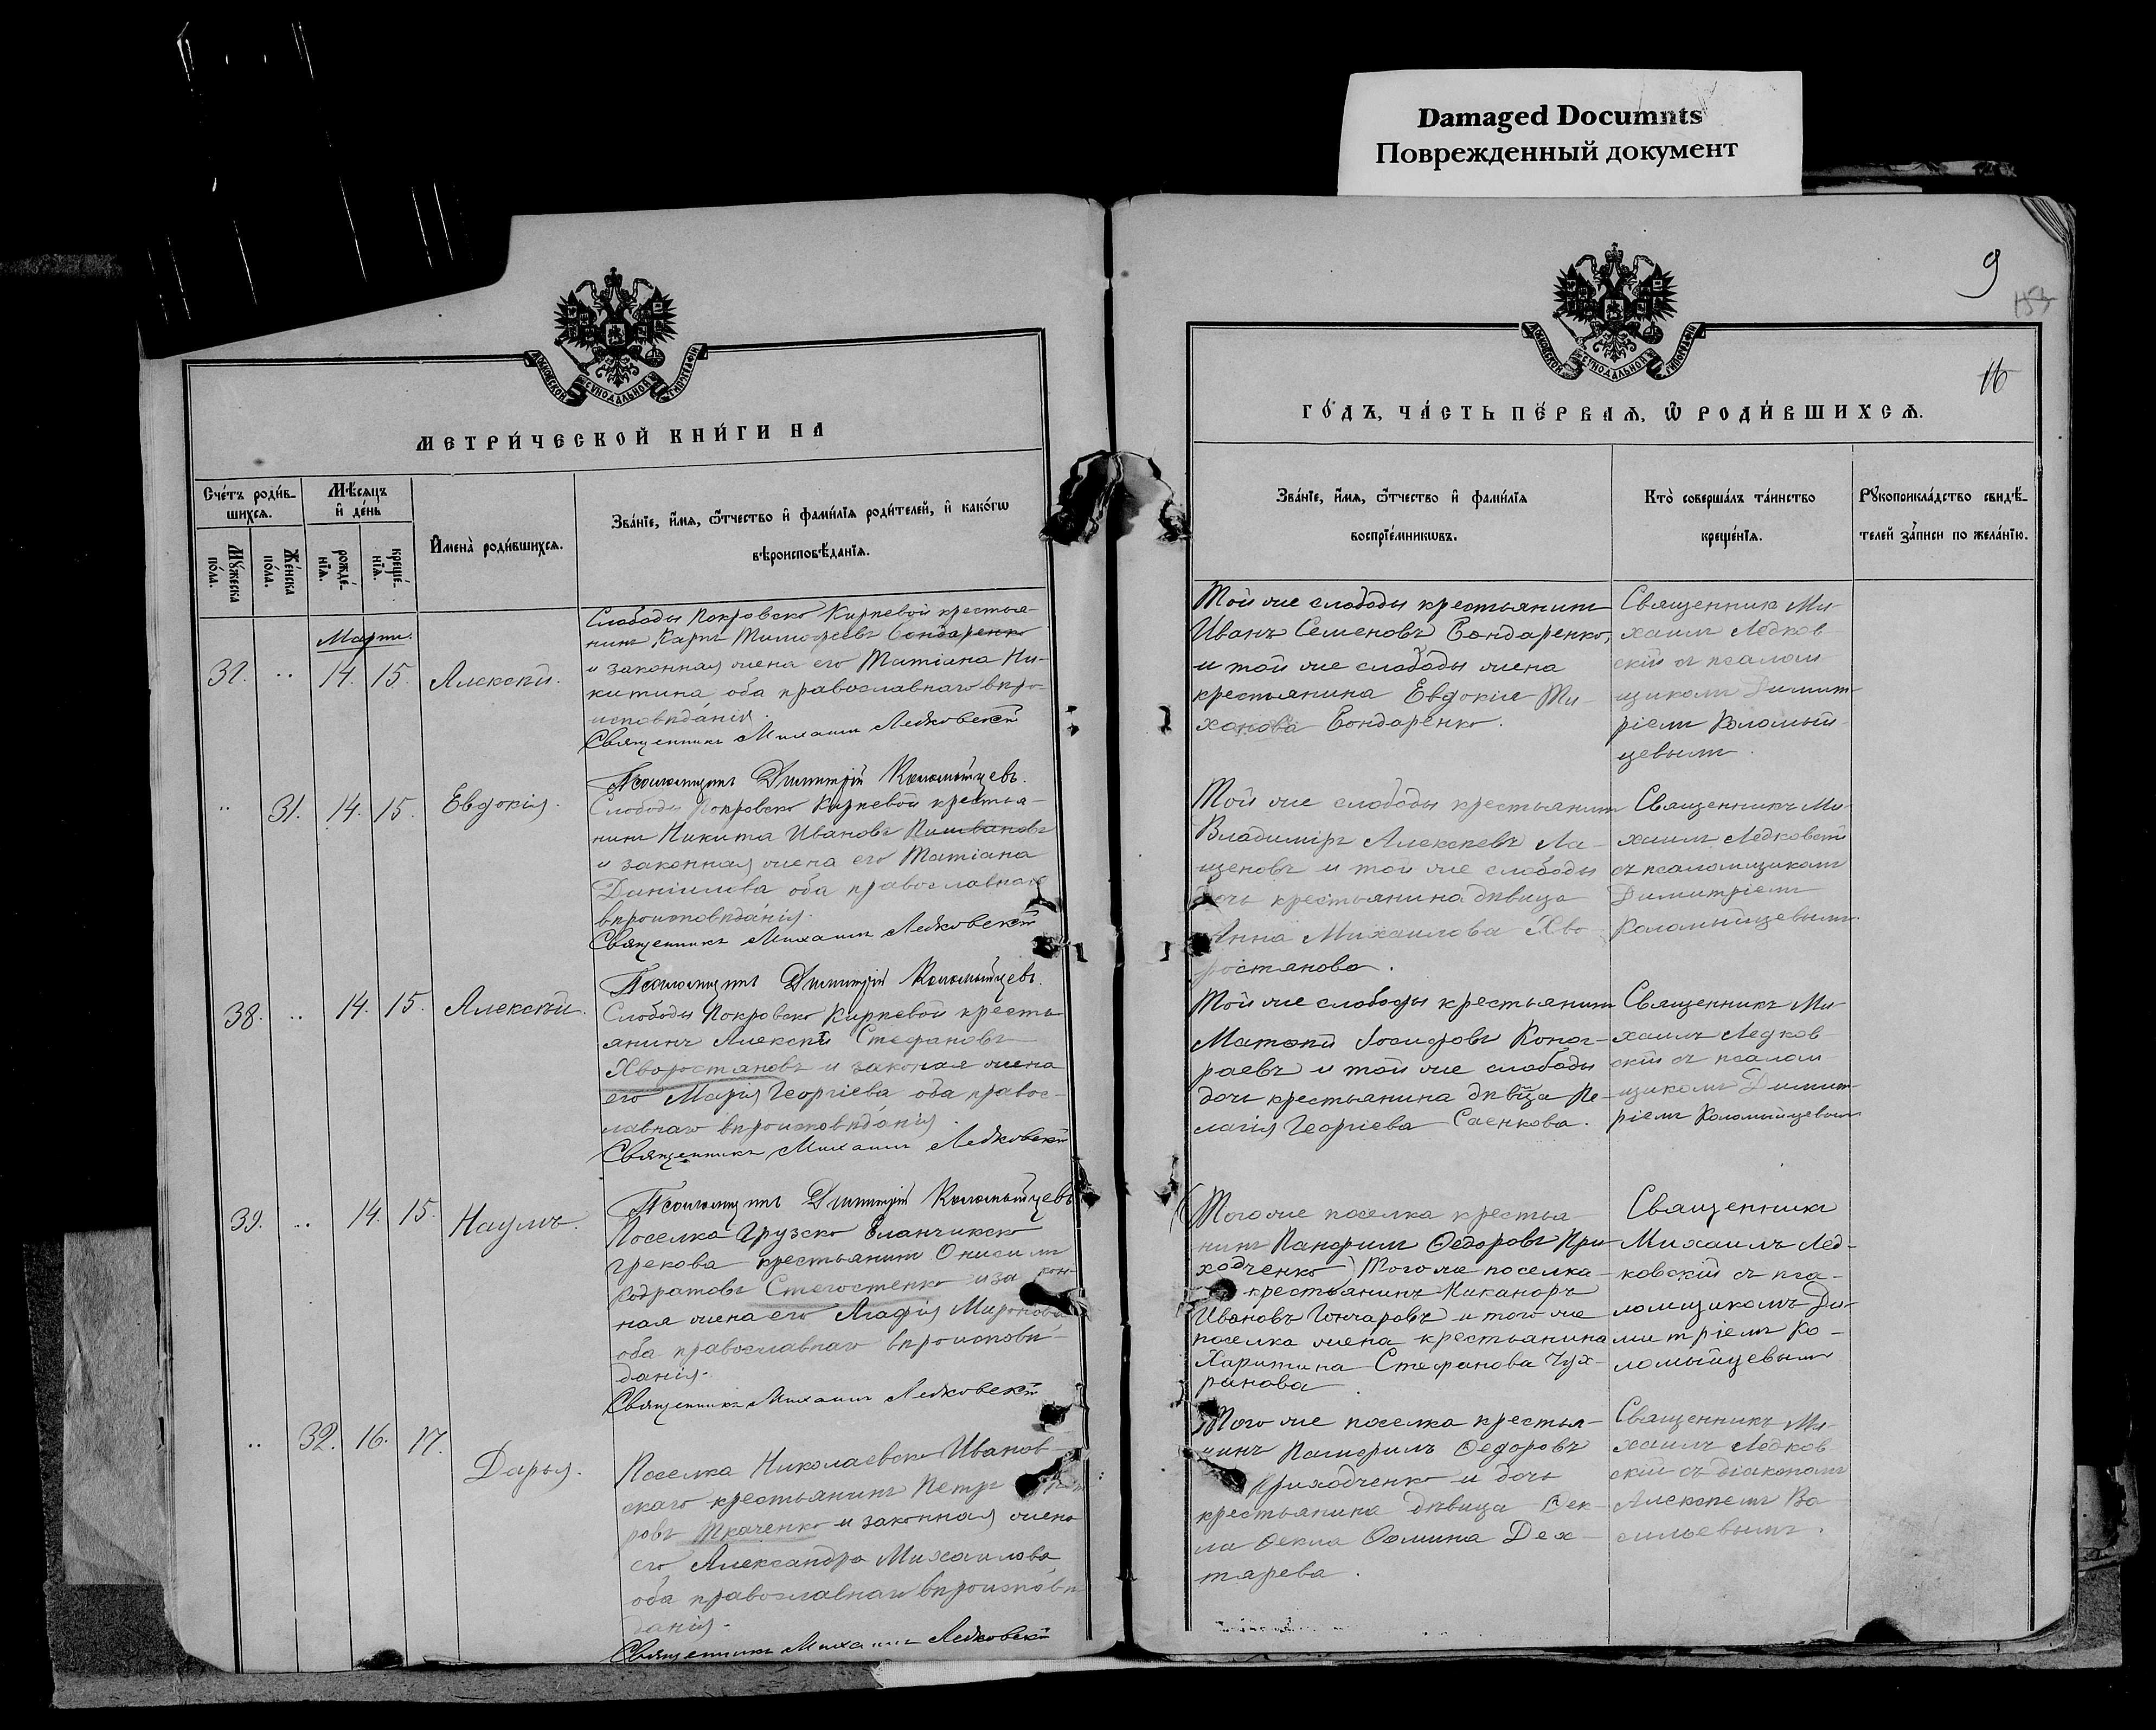 Damaged Documnts
Поврежденный документ
МЕТРИ́ЧЕСКОЙ КНИ́ГИ НА
Сче́тъ роди́в-
шихся.
Мѣ́сяцъ
и҆ де́нь
Мꙋ́жеска
по́ла.
Же́нска
по́ла.
рожде́-
нїя.
креще́-
нїя.
И҆мена̀ роди́вшихся.
Зва́нїе, и҆́мя, ѻ҆́тчество и҆ фами́лїя роди́телей, и҆ како́гѡ
вѣроисповѣ́данїя.
Мартъ.
14. 15. Алексѣй.
Слободы Покровско Кирѣевой крестья-
нинъ Карпъ Тимофѣевъ Бондаренко
и законная жена его Татіана Ни-
китина оба православнаго вѣро-
исповѣданія.
Священникъ Михаилъ Ледковскій
Псаломщикъ Димитрій Коломыйцевъ.
31. 14. 15. Евдокія.
Слободы Покровско Кирѣевой крестья-
нинъ Никита Ивановъ
и законная жена его Татіана
Даніилова оба православнаго
вѣроисповѣданія.
Священникъ Михаилъ Ледковскій
Псаломщикъ Димитрій Коломыйцевъ.
38. 14. 15. Алексѣй.
Слободы Покровско Кирѣевой кресть
янинъ Алексѣй Стефановъ
Хворостяновъ и законая жена
его Марія Георгіева оба правос-
лавнаго вѣроисповѣданія.
Священникъ Михаилъ Ледковскій
Псаломщикъ Димитрій Коломыйцевъ
39. 14. 15. Наумъ.
Поселка Грузско Еланчикско
Грекова крестьянинъ Онисимъ
Кодратовъ и за кон-
ная жена его Агафія Миронова
оба православнаго вѣроисповѣ-
данія.
Священникъ Михаилъ Ледковскій
32. 16. 17. Дарья.
Поселка Николаевско Иванов-
скаго крестьянинъ Петръ
ровъ Ткаченко и законная жена
его Александра Михаилова
оба православнаго вѣроисповѣ
данія.
Священникъ Михаилъ Ледковскій
9
153
16
ГО́ДЪ, ЧА́СТЬ ПЕ́РВАЯ, Ѽ РОДИ́ВШИХСЯ.
Зва́нїе, и҆́мя, ѻ҆́тчество и҆ фами́лїя
воспрїе́мникѡвъ.
Кто̀ соверша́лъ та́инство
креще́нїя.
Рꙋкоприкла́дство свидѣ́-
телей за́писи по жела́нїю.
Той же слободы крестьянинъ
Иванъ Семеновъ Бондаренко,
и той же слободы жена
крестьянина Евдокія Ти-
хонова Бондаренко.
Священникъ Ми-
хаилъ Ледков
скій съ псалом
щикомъ Димит-
ріемъ Коломый
цевымъ.
Той же слободы крестьянинъ
Владиміръ Алексѣевъ Ла-
щеновъ и той же слободы
дочь крестьянина дѣвица
Анна Михаилова Хво
ростянова.
Священникъ Ми-
хаилъ Ледковскій
съ псаломщикомъ
Димитріемъ
Коломыйцевымъ.
Той же слободы крестьянинъ
Матвѣй Іосифовъ Коног-
раевъ и той же слободы
дочь крестьянина дѣвица Пе-
лагія Георгіева Саенкова.
Священникъ Ми-
хаилъ Ледков
скій съ псалом
щикомъ Димит-
ріемъ Коломыйцевымъ
Того же поселка крестья
нинъ Памфилъ Ѳедоровъ При-
ходченко) Того же поселка
крестьянинъ Никаноръ
Ивановъ Гончаровъ и того же
поселка жена крестьянина
Харитина Стефанова Чух-
ранова
Священникъ
Михаилъ Лед-
ковскій съ пса-
ломщикомъ Ди-
митріемъ Ко-
ломыйцевымъ
Того же поселка крестья-
нинъ Памфилъ Ѳедоровъ
Приходченко и дочь
крестьянина дѣвица Ѳек-
ла Ѳекла Ѳомина Дех-
тярева.
Священникъ Ми-
хаилъ Ледков
скій съ діакономъ
Алексѣемъ Ва
сильевымъ.